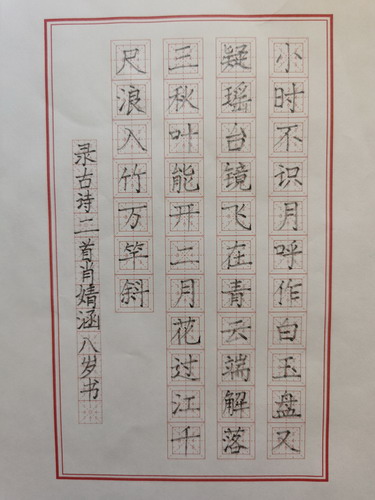 小时不识月呼作白玉盘又
疑瑶台镜飞在青云端解落
三秋叶能开二月花过江千
尺浪入竹万竿斜
录古诗二首肖婧涵八岁书